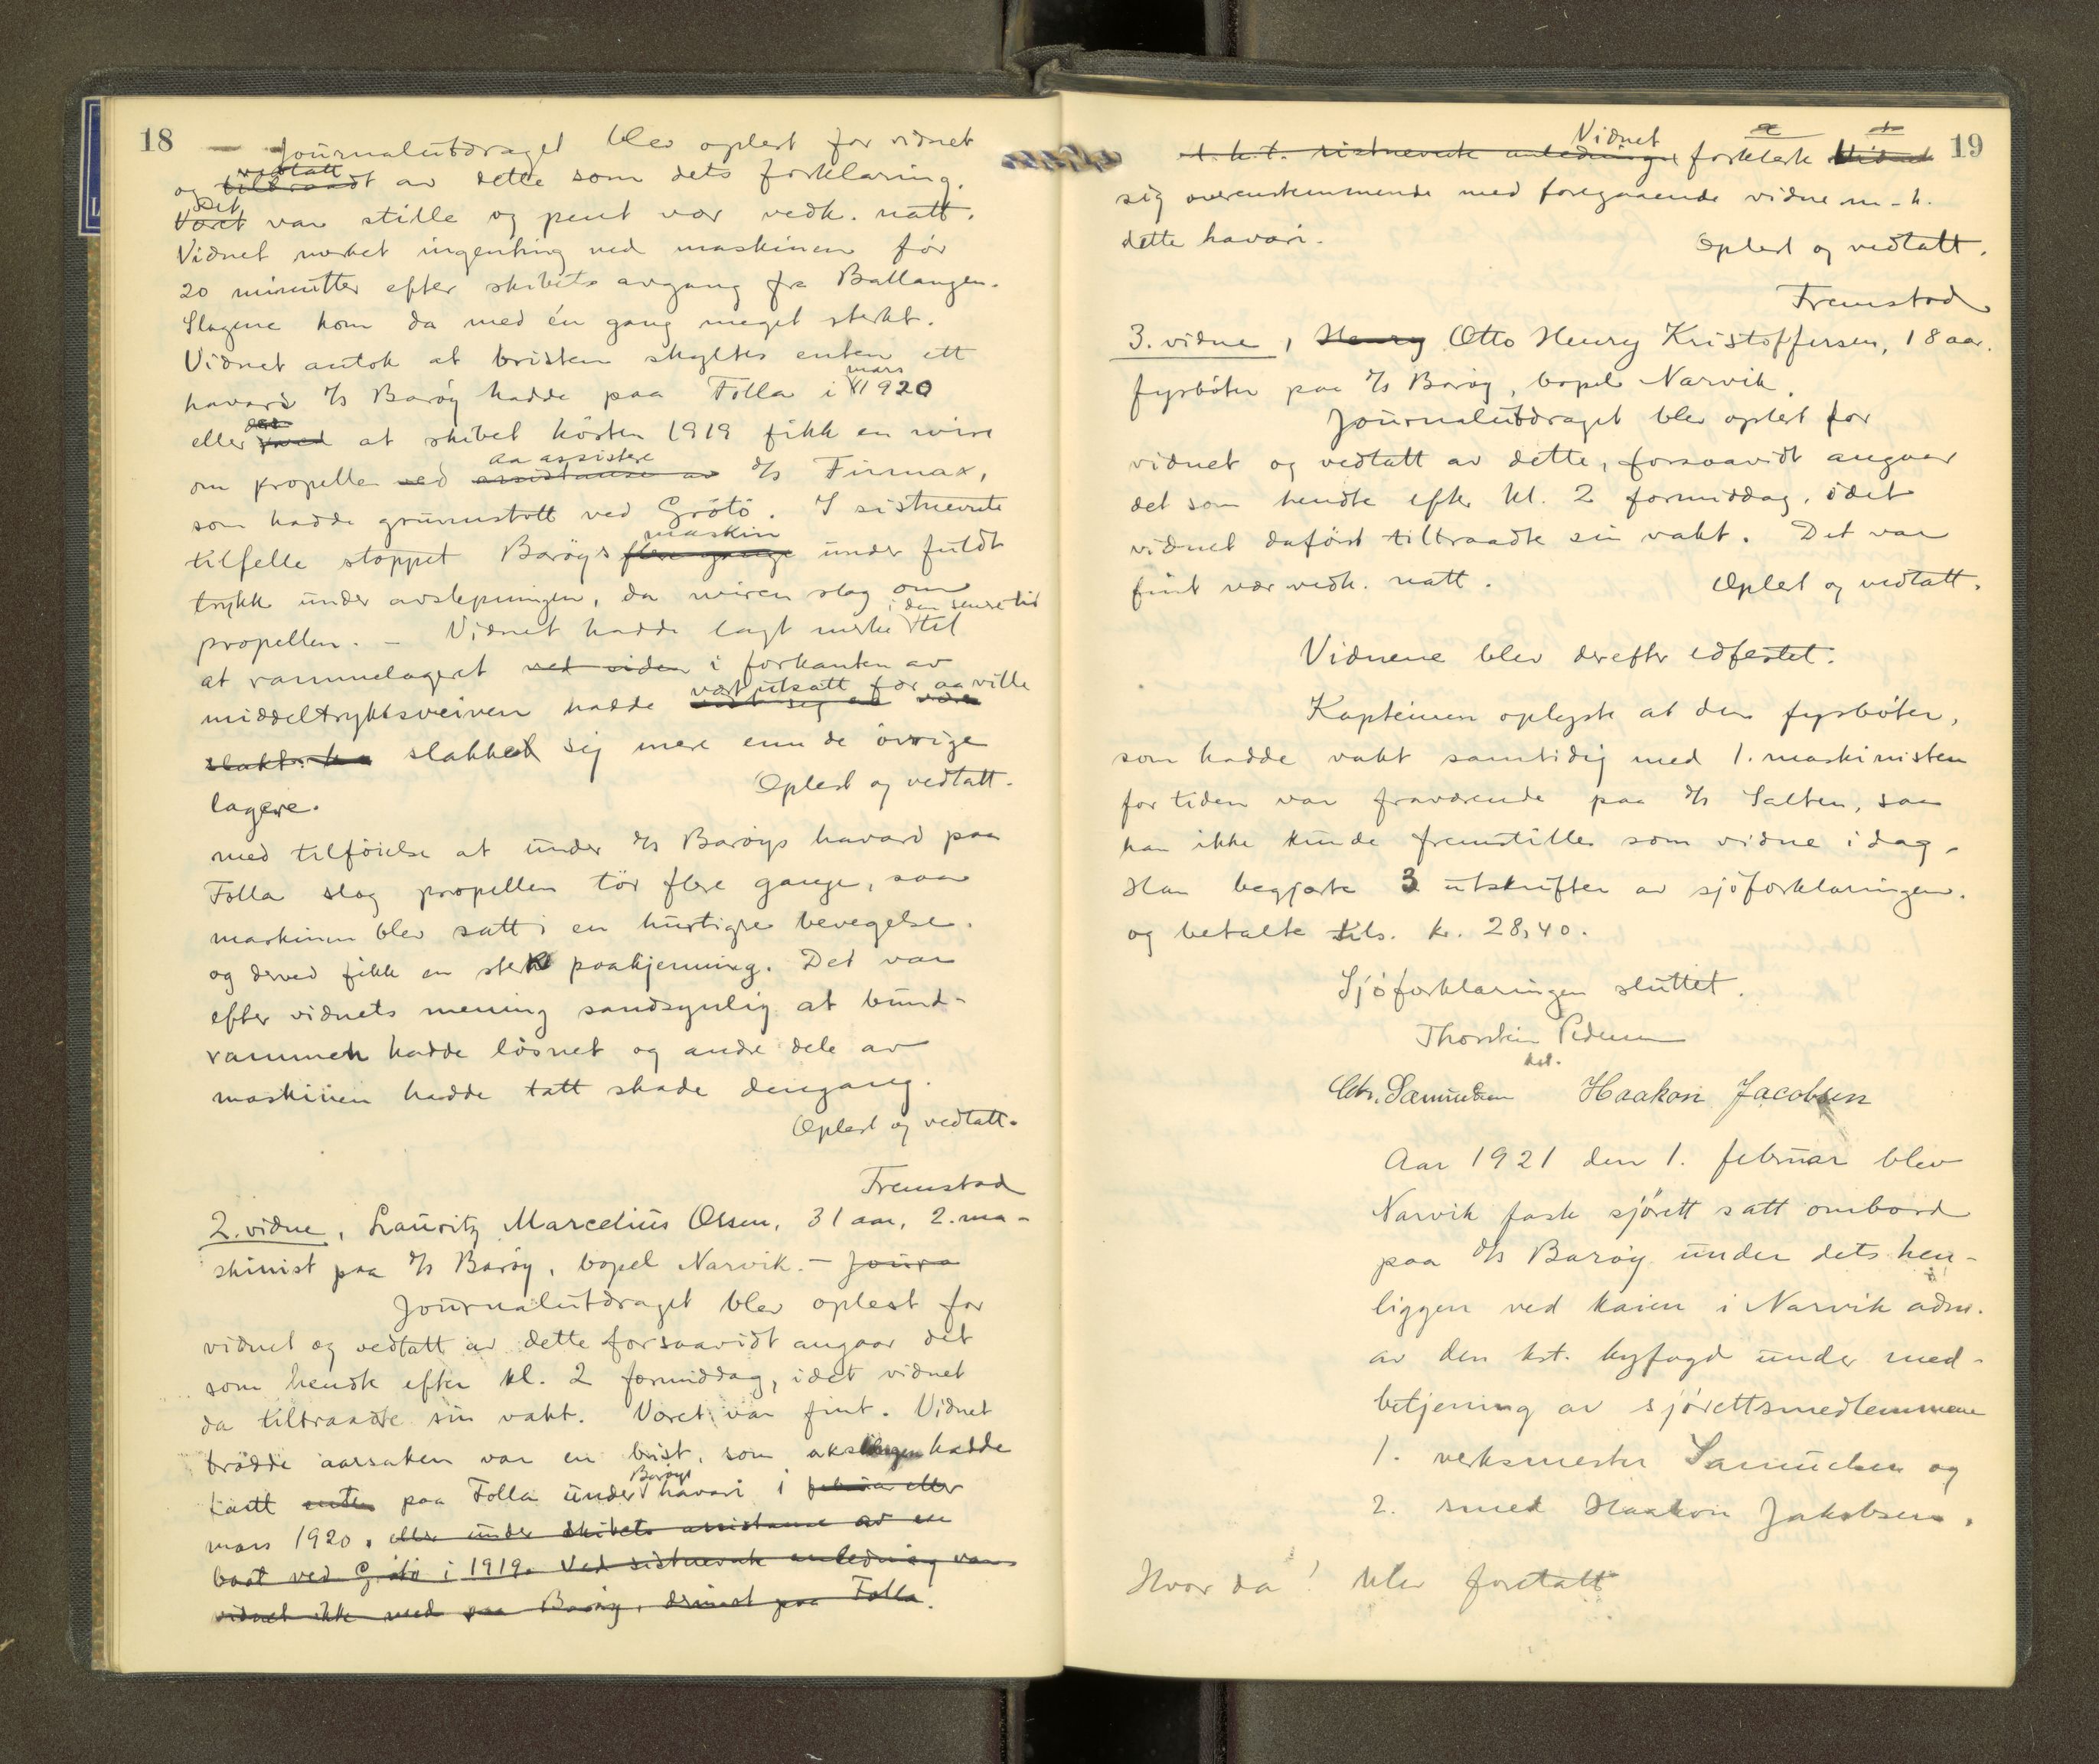 18
— Journalutdraget blev oplest for vidnet
vedtatt
og tiltraadt av dette som dets forklaring.
Det
Været var stille og pent vær vedk. natt.
Vidnet merket ingenting ved maskinen før
20 minutter efter skibets avgang fra Ballangen.
Slagene kom da med én gang meget sterkt.
Vidnet antok at bristen skyltes enten ett
mars
havari d/s Barøy hadde paa Folla i 1920
eller at skibet høsten 1919 fikk en wire
aa assistere
om propellen ved assistanse av d/s Firmax,
som hadde grunnstøtt ved Grøtø. I sistnevnte
maskin
tilfelle stoppet Barøys flere gange under fuldt
trykk under avslepningen, da wiren slog om
i den senere tid
propellen. – Vidnet hadde lagt merke til
at rammelageret ved siden i forkanten av
vært utsatt for aa ville
middeltrykksveiven hadde vist seg at være
slakt slakket sig mere enn de øvrige
lagere.
Oplest og vedtatt.
med tilføielse at under d/s Barøys havari paa
Folla slog propellen tør flere gange, saa
maskinen blev satt i en hurtigre bevegelse.
og derved fikk en sterk paakjenning. Det var
efter vidnets mening sandsynlig at bund-
rammen hadde løsnet og andre dele av
maskinen hadde tatt skade dengang.
Oplest og vedtatt.
Fremstod
2. vidne, Lauritz Marcelius Olsen, 31 aar, 2. ma-
skinist paa d/s Barøy, bopel Narvik. – Journa
Journalutdraget blev oplest for
vidnet og vedtatt av dette forsaavidt angaar det
som hendte efter kl. 2 formiddag, idet vidnet
da tiltraadte sin vakt. Været var fint. Vidnet
trodde aarsaken var en brist, som akslingen hadde
Barøys
faatt enten paa Folla under havari i februar eller
mars 1920. eller under skibets assistanse av en
baat ved Grøtø i 1919. Ved sistnevnte anledning var
vidnet ikke med paa Barøy, derimot paa Folla.
19
Vidnet
m.h.t. sistnevnte anledning forklarte Vidnet
sig overenstemmende med foregaaende vidne m.h.
dette havari.
Oplest og vedtatt.
Fremstod
3. vidne, Henry Otto Henry Kristoffersen, 18 aar.
fyrbøter paa d/s Barøy, bopel Narvik.
Journalutdraget blev oplest for
vidnet og vedtatt av dette, forsaavidt angaar
det som hendte efter kl. 2 formiddag, idet
vidnet da først tiltraadte sin vakt. Det var
fint vær vedk. natt.
Oplest og vedtatt.
Vidnene blev derefter edfestet.
Kapteinen oplyste at den fyrbøter,
som hadde vakt samtidig med 1. maskinisten
for tiden var fraværende paa d/s Salten, saa
han ikke kunde fremstilles som vidne idag.
Han begjærte 3 utskrifter av sjøforklaringen.
og betalte tils. kr. 28,40.
Sjøforklaringen sluttet.
Thorstein Pedersen
kst.
Chr. Samuelsen Haakon Jacobsen
Aar 1921 den 1. februar blev
Narvik faste sjørett satt ombord
paa d/s Barøy under dets hen-
liggen ved kaien i Narvik adm.
av den kst. byfogd under med-
betjening av sjørettsmedlemmene
1. verksmester Samuelsen og
2. smed Haakon Jakobsen.
Hvor da! blev foretatt